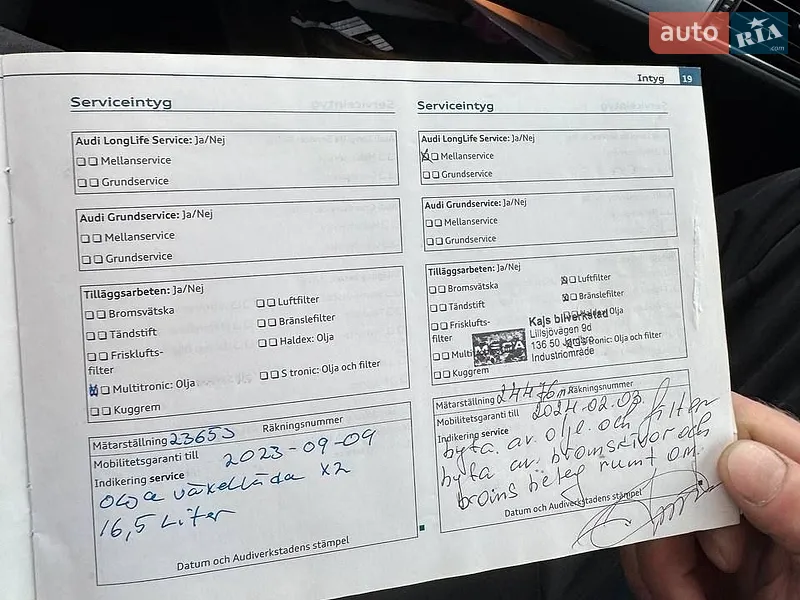 auto RIA .com
Intyg 19
Serviceintyg
Audi LongLife Service: Ja/Nej
Mellanservice
Grundservice
Audi Grundservice: Ja/Nej
Mellanservice
Grundservice
Tilläggsarbeten: Ja/Nej
Bromsvätska
Tändstift
Frisklufts-
filter
Multitronic: Olja
Kuggrem
Luftfilter
Bränslefilter
Haldex: Olja
S tronic: Olja och filter
Mätarställning 23653 Räkningsnummer
Mobilitetsgaranti till 2023-09-09
Indikering service
Olja växellåda x2
16,5 Liter
Datum och Audiverkstadens stämpel
Serviceintyg
Audi LongLife Service: Ja/Nej
Mellanservice
Grundservice
Audi Grundservice: Ja/Nej
Mellanservice
Grundservice
Tilläggsarbeten: Ja/Nej
Bromsvätska
Tändstift
Frisklufts-
filter
Kuggrem
Luftfilter
Bränslefilter
Olja
S tronic: Olja och filter
Kajs bilverkstad
Lillsjövägen 9d
136 50
Industriområde
MECA
Mätarställning 24476 Räkningsnummer
Mobilitetsgaranti till 2024.02.03
Indikering service
byta av olje och filter
byta av bromsskivor och
broms beleg runt om.
Datum och Audiverkstadens stämpel